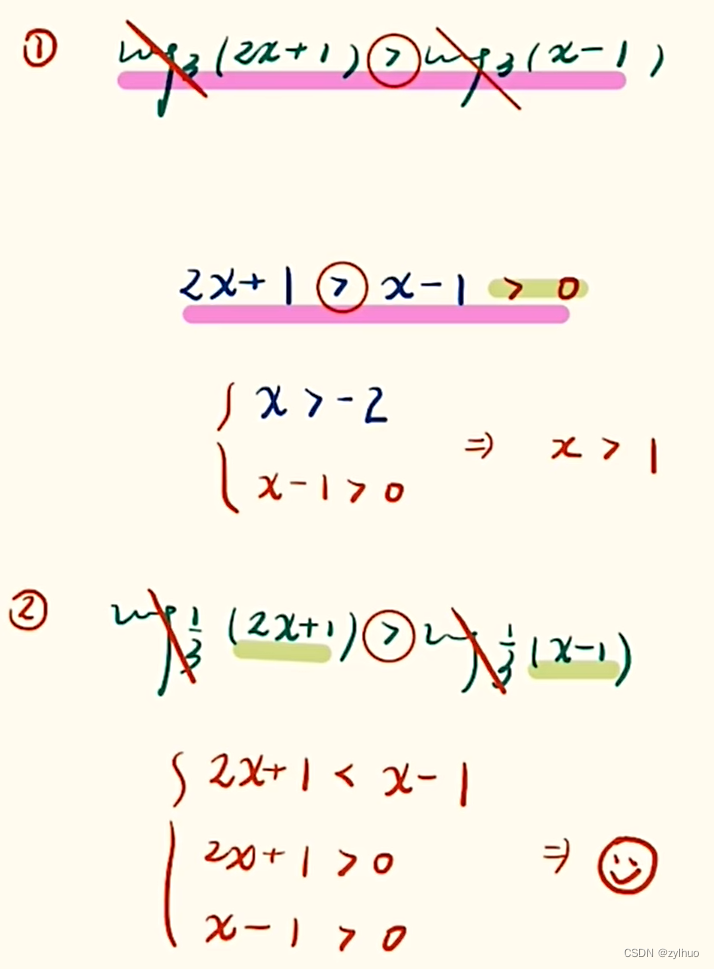 ① log₃(2x+1) > log₃(x-1)
2x+1 > x-1 > 0
{ x > -2
x-1 > 0 ⇒ x > 1
② log 1/3 (2x+1) > log 1/3 (x-1)
{ 2x+1 < x-1
2x+1 > 0 ⇒
x-1 > 0
CSDN @zylhuo